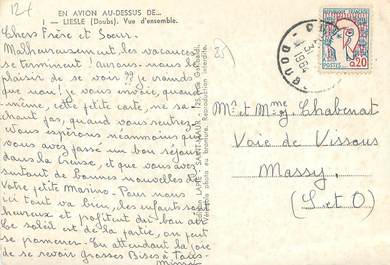 124
EN AVION AU-DESSUS DE...
1 — LIESLE (Doubs). Vue d'ensemble.
Chers Frère et Soeur.
Malheureusement les vacances
se terminent! Aurons-nous le
plaisir de se voir?? je crains
que non! je vous envoie, quand
même, cette petite carte, ne sa-
chant pas, quand vous rentrez.
Nous espérons néanmoins que
vous avez passé un bon séjour
dans la Creuse, et que vous avez
surtout de bonnes nouvelles de
votre petite Marino. Pour nous
ici tout va bien, les enfants sont
heureux et profitent du bon air
Le soleil est de la partie, on peut
se promener. En attendant la joie
de se revoir Grosses Bises à Tous
Mimi
Edition LAPIE - SAINT-MAUR
Véritable photo au bromure. Reproduction interdite.
35)
DOUBS
1961
POSTES
0,20
Mr et Mme Chabenat
Voie de Vissous
Massy.
(S et O)